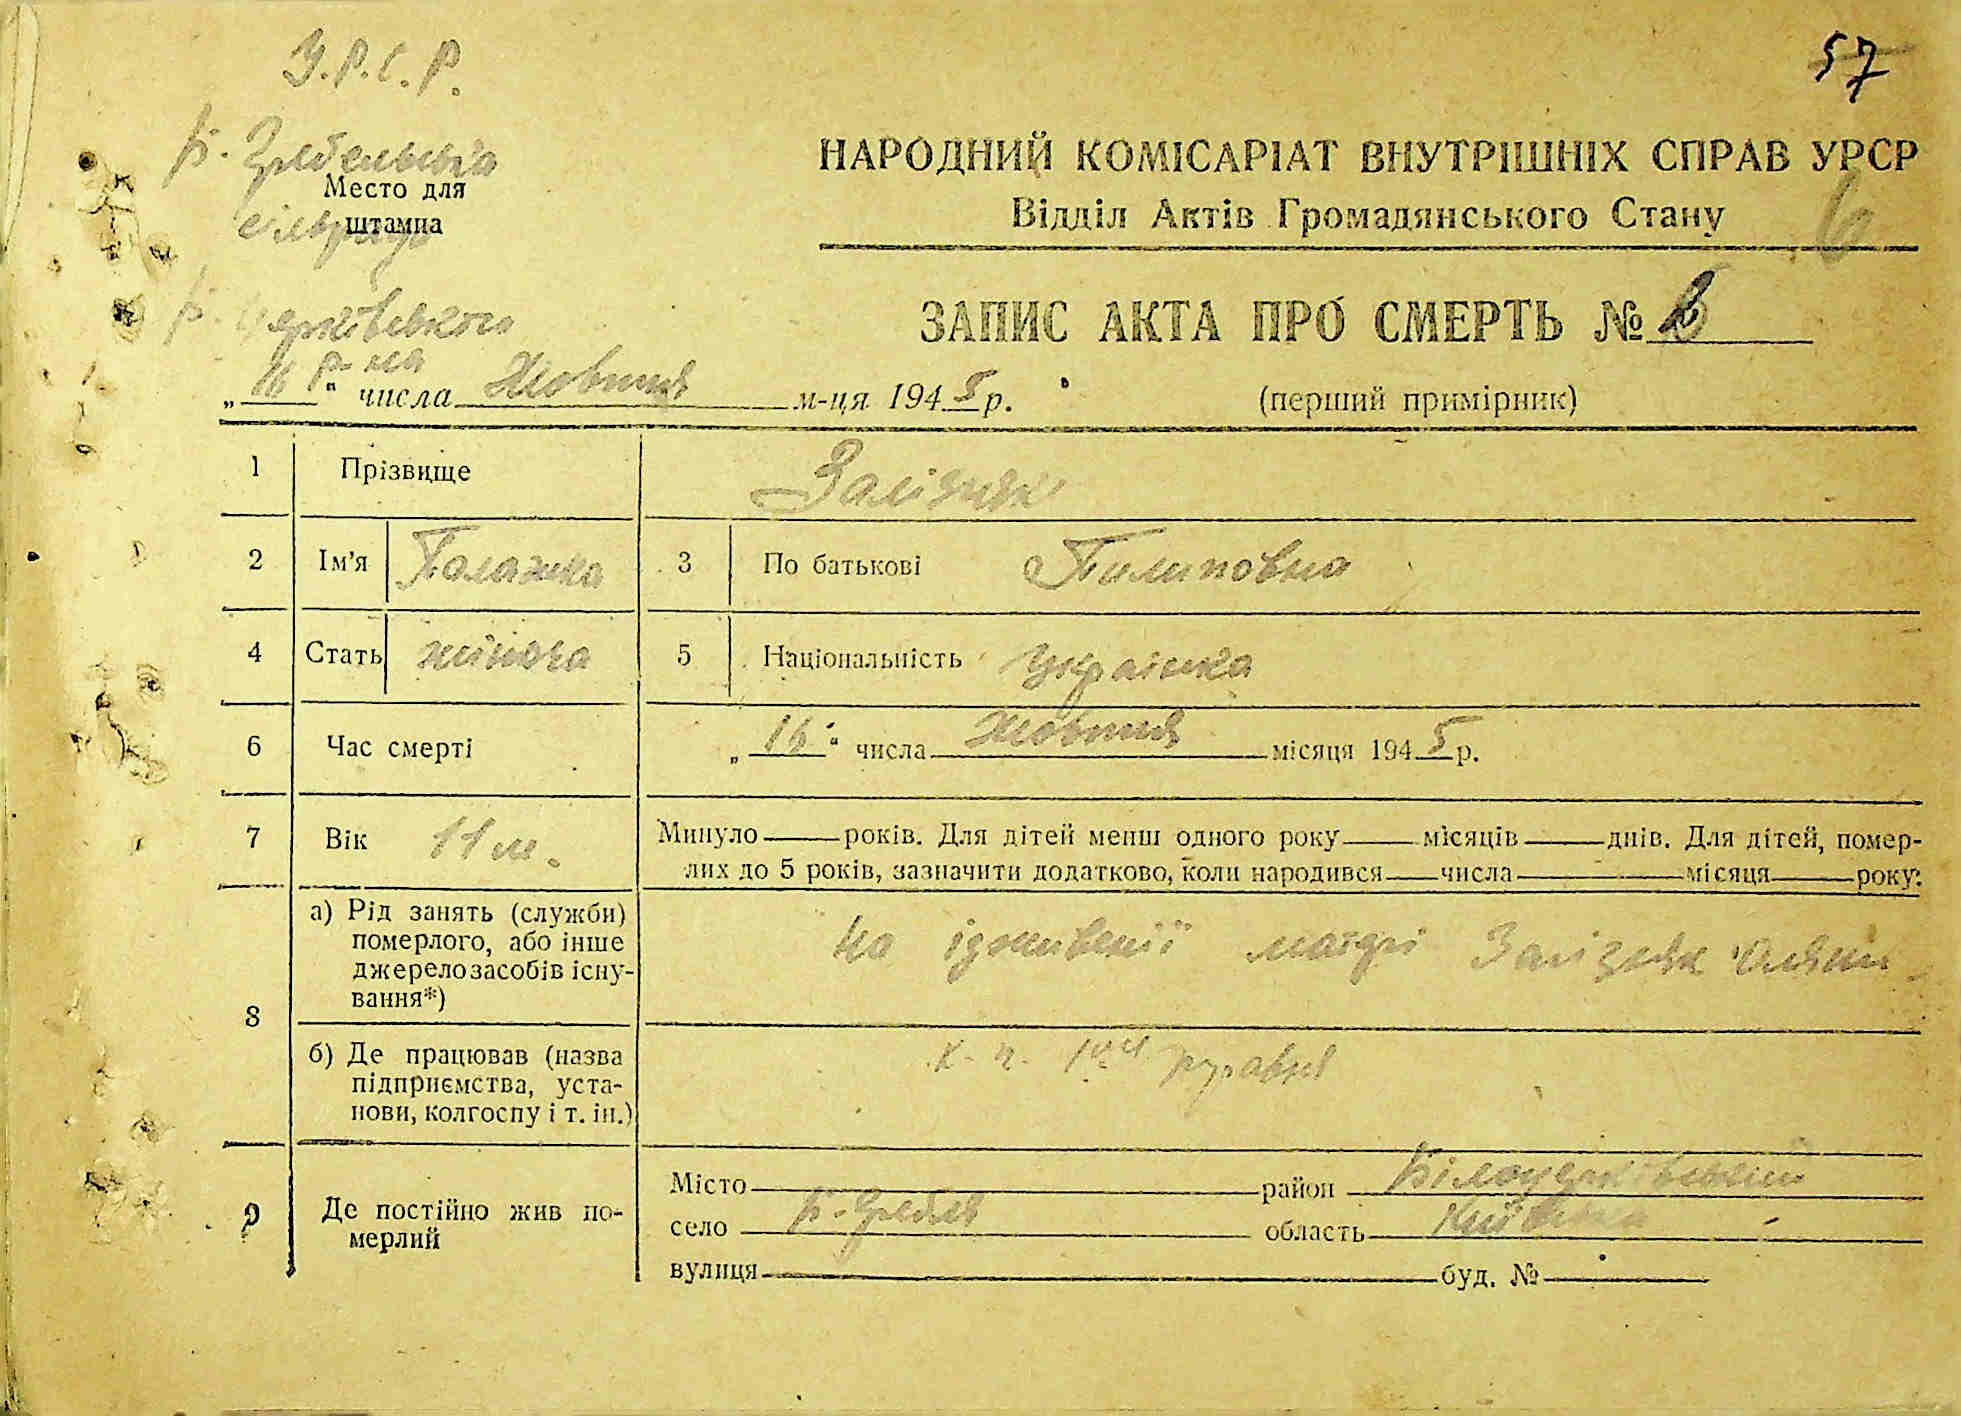 У.Р.С.Р.
57
Б. Гребельська
Место для
штампа
сільрада
НАРОДНИЙ КОМІСАРІАТ ВНУТРІШНІХ СПРАВ УРСР
Відділ Актів Громадянського Стану
6
ЗАПИС АКТА ПРО СМЕРТЬ № 6
Б. Церківського
р-на
„16" числа Жовтня м-ця 1945 р. (перший примірник)
1 Прізвище Залізняк
2 Ім'я Палажка 3 По батькові Пилиповна
4 Стать жіноча 5 Національність Українка
6 Час смерті „16" числа Жовтня місяця 1945 р.
7 Вік 11 м. Минуло ___ років. Для дітей менш одного року ___ місяців ___ днів. Для дітей, помер-
лих до 5 років, зазначити додатково, коли народився ___ числа ___ місяця ___ року.
8 а) Рід занять (служби)
померлого, або інше
джерело засобів існу-
вання*)
На іждивенії матері Залізняк
б) Де працював (назва
підприємства, уста-
нови, колгоспу і т. ін.)
к-п. 1го травня
9 Де постійно жив по-
мерлий
Місто ___ район Білоцерківський
село Б-Гребля область Київська
вулиця ___ буд. № ___